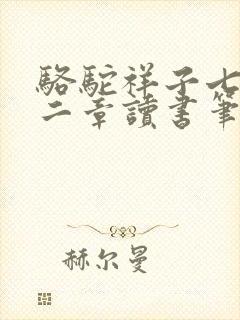 駱駝祥子七
二章讀書筆
赫尔曼